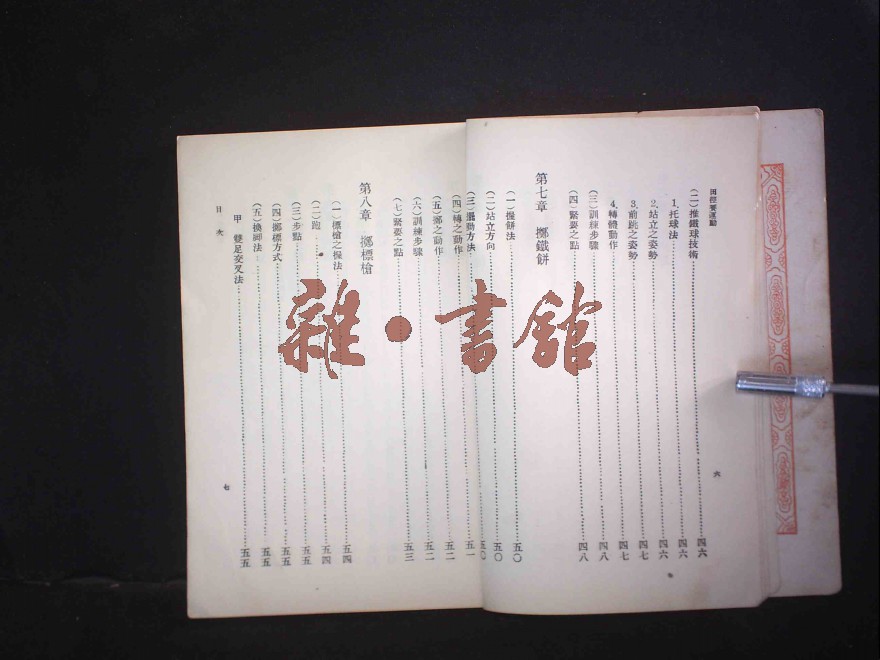 田徑賽運動
(二)推鐵球技術……四六
1.托球法……四六
2.站立之姿勢……四六
3.前跳之姿勢……四七
4.轉體動作……四七
(三)訓練步驟……四八
(四)緊要之點……四八
第七章 擲鐵餅
(一)握餅法……五〇
(二)站立方向……五〇
(三)擺動方法……五〇
(四)轉之動作……五一
(五)擲之動作……五二
(六)訓練步驟……五二
(七)緊要之點……五三
六
第八章 擲標槍
(一)標槍之握法……五四
(二)跑……五四
(三)步點……五五
(四)擲標方式……五五
(五)換脚法……五五
甲 雙足交叉法……五五
目次
七
雜·書館